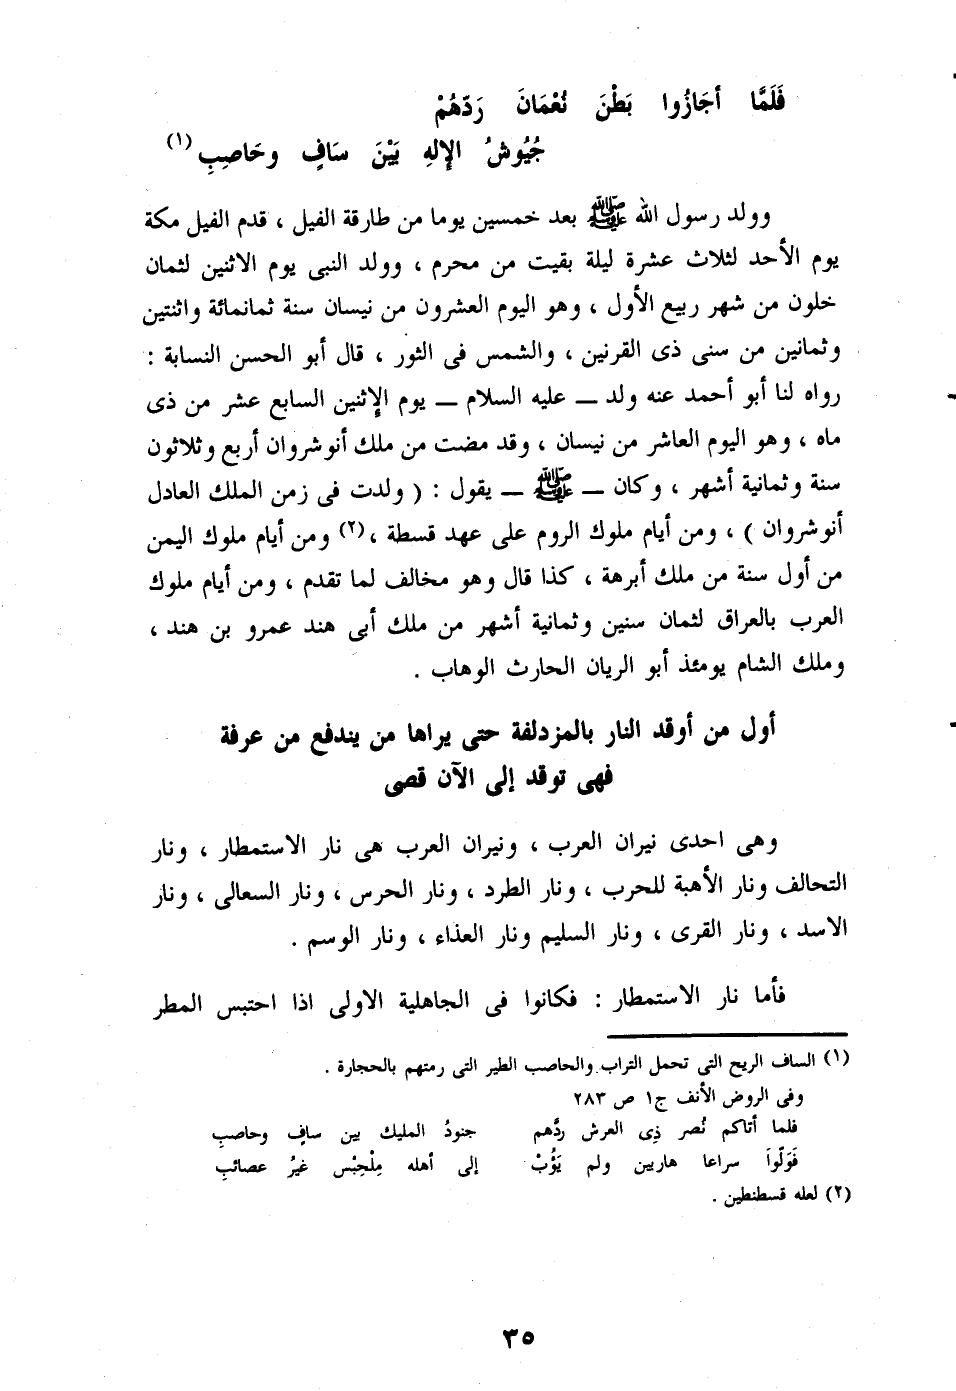 فَلَمَّا أجَازُوا بَطْنَ نُعْمَانَ رَدّهُمْ
جُيُوشُ الإلهِ بَيْنَ سَافٍ وحَاصِبِ (١)
وولد رسول الله ﷺ بعد خمسين يوما من طارقة الفيل ، قدم الفيل مكة
يوم الأحد لثلاث عشرة ليلة بقيت من محرم ، وولد النبى يوم الاثنين لثمان
خلون من شهر ربيع الأول ، وهو اليوم العشرون من نيسان سنة ثمانمائة واثنتين
وثمانين من سنى ذى القرنين ، والشمس فى الثور ، قال أبو الحسن النسابة :
رواه لنا أبو أحمد عنه ولد ـ عليه السلام ـ يوم الإثنين السابع عشر من ذى
ماه ، وهو اليوم العاشر من نيسان ، وقد مضت من ملك أنوشروان أربع وثلاثون
سنة وثمانية أشهر ، وكان ـ ﷺ ـ يقول : ( ولدت فى زمن الملك العادل
أنوشروان ) ، ومن أيام ملوك الروم على عهد قسطة ،(٢) ومن أيام ملوك اليمن
من أول سنة من ملك أبرهة ، كذا قال وهو مخالف لما تقدم ، ومن أيام ملوك
العرب بالعراق لثمان سنين وثمانية أشهر من ملك أبى هند عمرو بن هند ،
وملك الشام يومئذ أبو الريان الحارث الوهاب .
أول من أوقد النار بالمزدلفة حتى يراها من يندفع من عرفة
فهى توقد إلى الآن قصى
وهى احدى نيران العرب ، ونيران العرب هى نار الاستمطار ، ونار
التحالف ونار الأهبة للحرب ، ونار الطرد ، ونار الحرس ، ونار السعالى ، ونار
الاسد ، ونار القرى ، ونار السليم ونار العذاء ، ونار الوسم .
فأما نار الاستمطار : فكانوا فى الجاهلية الاولى اذا احتبس المطر
(١) الساف الريح التى تحمل التراب والحاصب الطير التى رمتهم بالحجارة .
وفى الروض الأنف ج١ ص ٢٨٣
فلما أتاكم نُصر ذِى العرش ردَّهم جنودُ المليك بين سافٍ وحاصبِ
فَوَلّواَ سراعا هاربين ولم يَؤُبْ إلى أهله مِلْحِبْس غيرُ عصائبِ
(٢) لعله قسطنطين .
٣٥